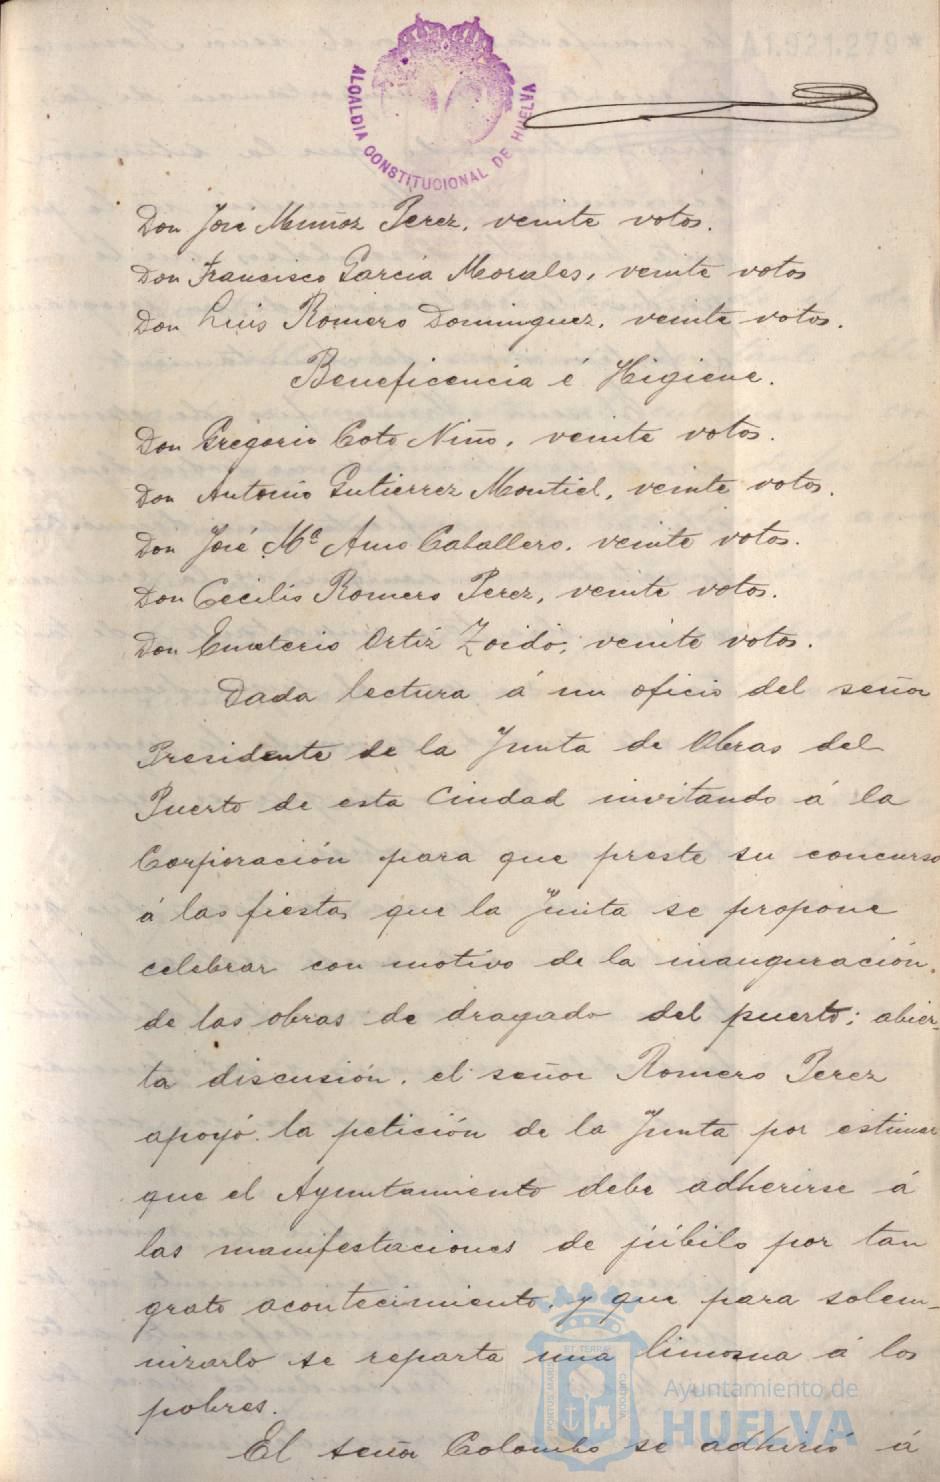 A1.921.279*
ALCALDIA CONSTITUCIONAL DE HUELVA
Don José Muñoz Perez, veinte votos.
Don Francisco Garcia Morales, veinte votos
Don Luis Romero Dominguez, veinte votos.
Beneficencia é Higiene.
Don Gregorio Coto Niño, veinte votos.
Don Antonio Gutierrez Montiel, veinte votos.
Don José Mª Amo Caballero, veinte votos.
Don Cecilio Romero Perez, veinte votos.
Don Emeterio Ortiz Zoido, veinte votos.
Dada lectura á un oficio del señor
Presidente de la Junta de Obras del
Puerto de esta Ciudad invitando á la
Corporación para que preste su concurso
á las fiestas que la Junta se propone
celebrar con motivo de la inauguración
de las obras de dragado del puerto; abier-
ta discusión, el señor Romero Perez
apoyó la petición de la Junta por estimar
que el Ayuntamiento debe adherirse á
las manifestaciones de júbilo por tan
grato acontecimiento, y que para solem-
nizarlo se reparta una limosna á los
pobres.
El señor Colombo se adhirió á
PORTUS MARIS ET TERRAE CUSTODIA
Ayuntamiento de
HUELVA